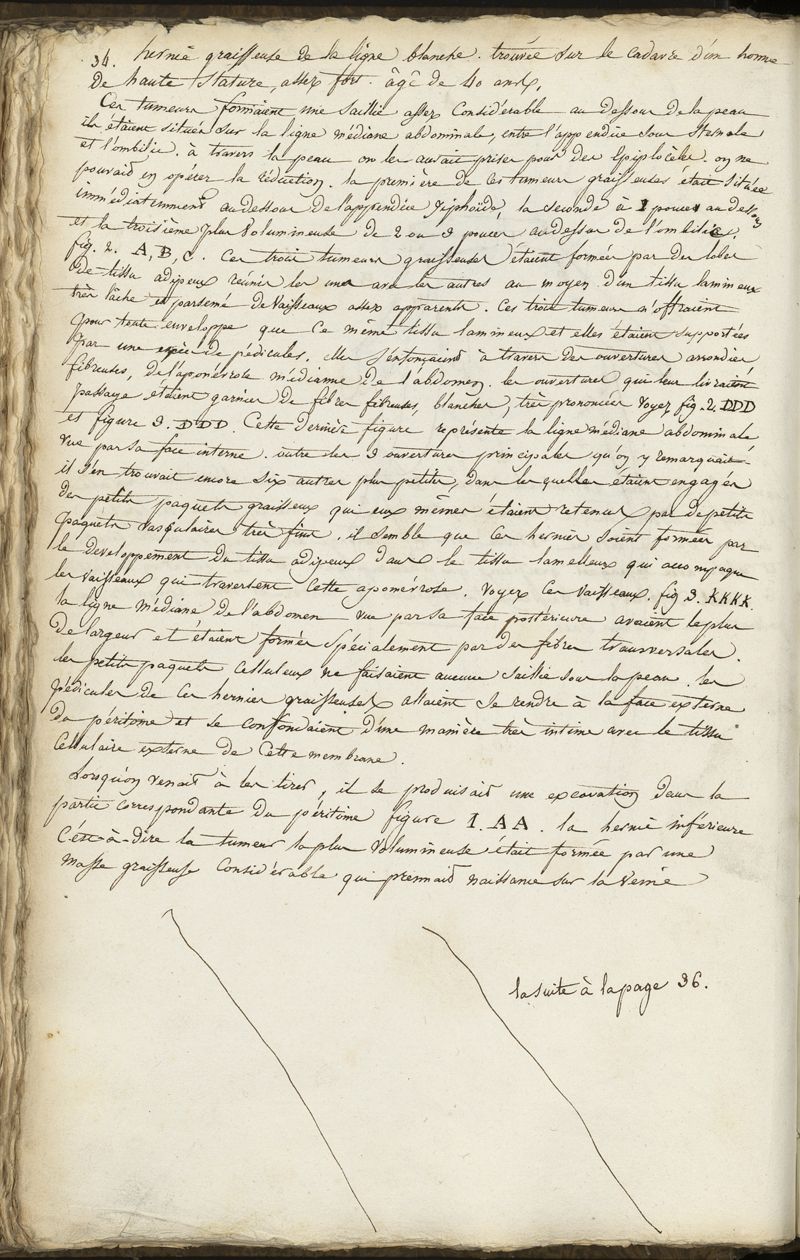 34. hernie graisseuse de la ligne blanche. trouvée sur le cadavre d'un homme
De haute Stature, assez fort. âgé de 40 ans.
Ces tumeurs formaient une saillie assez Considérable au dessous de la peau
ils étaient situés sur la ligne médiane abdominale, entre l'appendice sous Sternale
et l'ombilic. à travers la peau on les aurait prises pour des Epiplocèles. on ne
pouvait en opérer la réduction. la première de ces tumeurs graisseuses était située
immédiatement au dessous de l'appendice Xiphoïde, la seconde à 3 pouces au dessous
et la troisième plus Volumineuse de 2 ou 3 pouces au dessus de l'ombilic,
fig. 2. A, B, C. Ces trois tumeurs graisseuses étaient formées par des lobes
de tissu adipeux réunis les uns avec les autres au moyen d'un tissu lamineux
très lâche et parsemé de Vaisseaux assez apparents. Ces trois tumeurs n'offraient
pour toute enveloppe que Ce même tissu lamineux et elles étaient supportées
par une espèce de pédicules. elles s'enfonçaient à travers des ouvertures arrondies
fibreuses, de l'aponévrose médianne de l'abdomen. les ouvertures qui leur livraient
passage étaient garnies de fibres fibreuses, blanches, très prononcées Voyez fig. 2. DDD
et figure 3. DDD. Cette dernière figure représente la ligne médiane abdominale
vue par sa face interne. outre les 3 ouvertures principales qu'on y remarquait
il s'en trouvait encore six autres plus petites, dans lesquelles étaient engagés
des petits paquets graisseux qui eux mêmes étaient retenus par de petits
paquets vasculaires très fins. il semble que Ces hernies soient formées par
le developpement du tissu adipeux dans le tissu lamelleux qui accompagne
les vaisseaux qui traversent Cette aponévrose. Voyez Ces vaisseaux. fig 3. KKKK.
la ligne médiane de l'abdomen vue par sa face postérieure avaient le plus
De largeur et étaient formés Spécialement par des fibres transversales.
les petits paquets Celluleux ne faisaient aucune saillie sous la peau. les
pédicules de Ces hernies graisseuses allaient se rendre à la face externe
Du péritoine et se confondaient d'une manière très intime avec le tissu
Cellulaire externe de Cette membrane.
Lorsqu'on venait à les tirer, il se produisait une excavation dans la
partie correspondante du péritoine figure 1. AA. la hernie inférieure
C'est-à-dire la tumeur la plus Volumineuse était formée par une
Masse graisseuse Considérable qui prennait naissance sur la veine
la suite à la page 36.